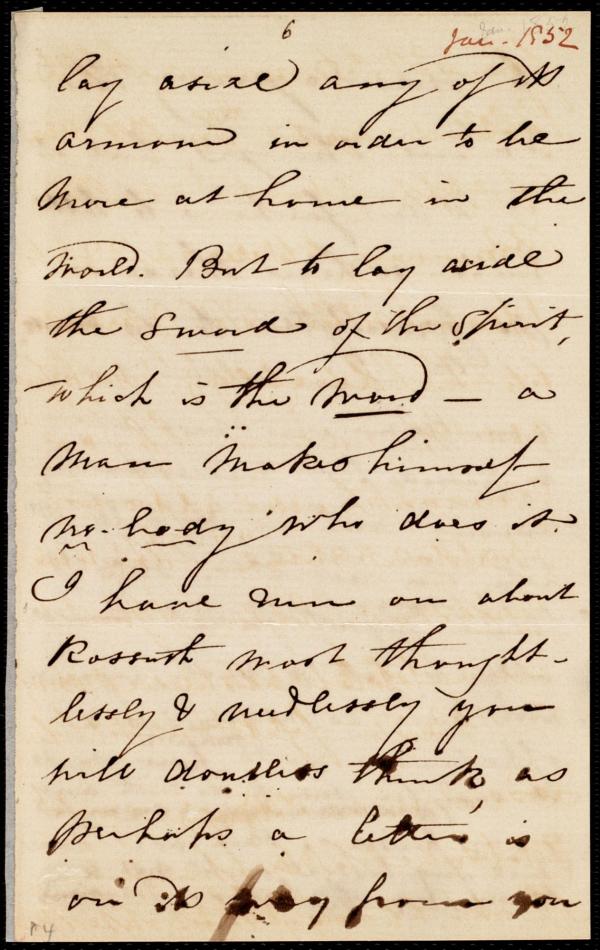 6
Jan. 1852
lay aside any of its
armour in order to be
more at home in the
world. But to lay aside
the sword of the Spirit,
which is the word — a
man makes himself
no-body who does it.
I have run on about
Kossuth most thought-
lessly & needlessly you
will doubtless think, as
perhaps a letter is
on its way from you